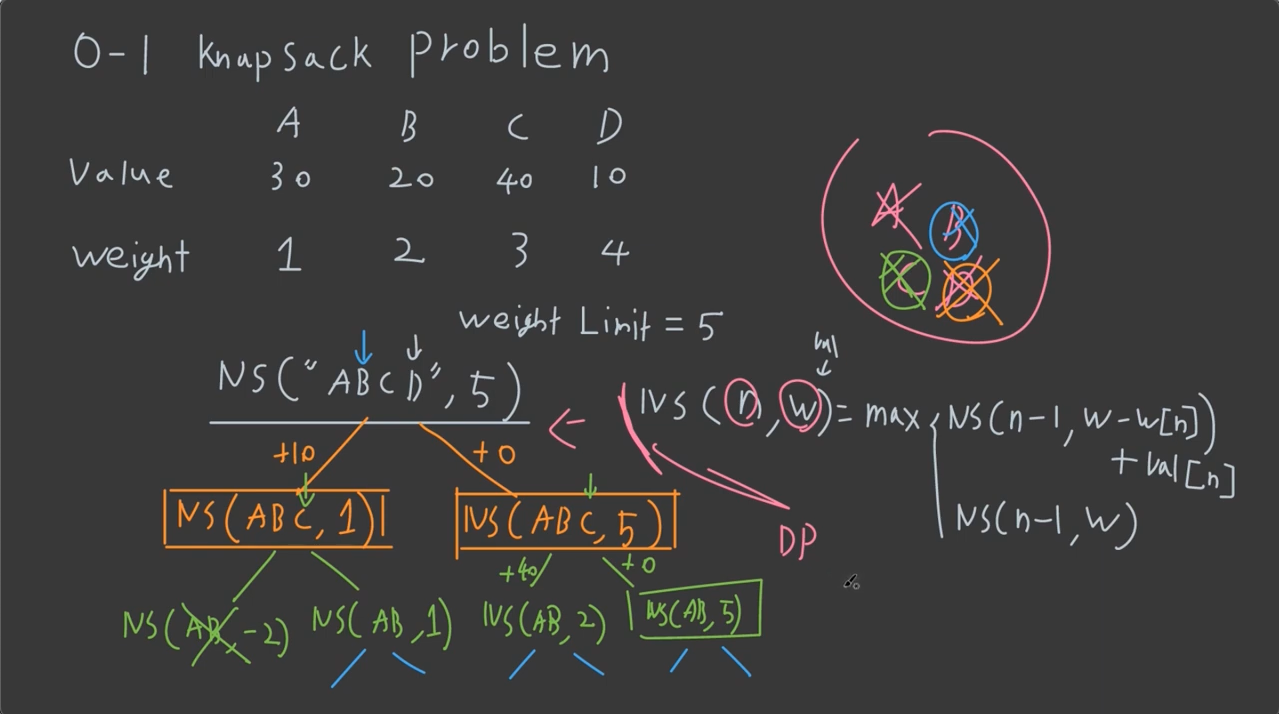 0-1 knapsack problem
A B C D
Value 30 20 40 10
weight 1 2 3 4
A B
C D
weight Limit = 5
val
NS("ABCD", 5)
NS(n, w) = max { NS(n-1, w-w[n])
+ val[n]
NS(n-1, w)
+10 +0
NS(ABC, 1) NS(ABC, 5)
DP
+40 +0
NS(AB, -2) NS(AB, 1) NS(AB, 2) NS(AB, 5)